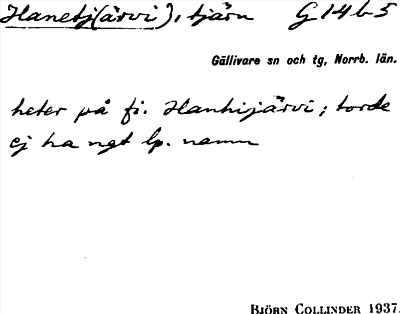 Hanetj(ärvi), tjärn G 14 b 5
Gällivare sn och tg, Norrb. län.
heter på fi. Hanhijärvi; torde
ej ha ngt lp. namn
BJÖRN COLLINDER 1937.